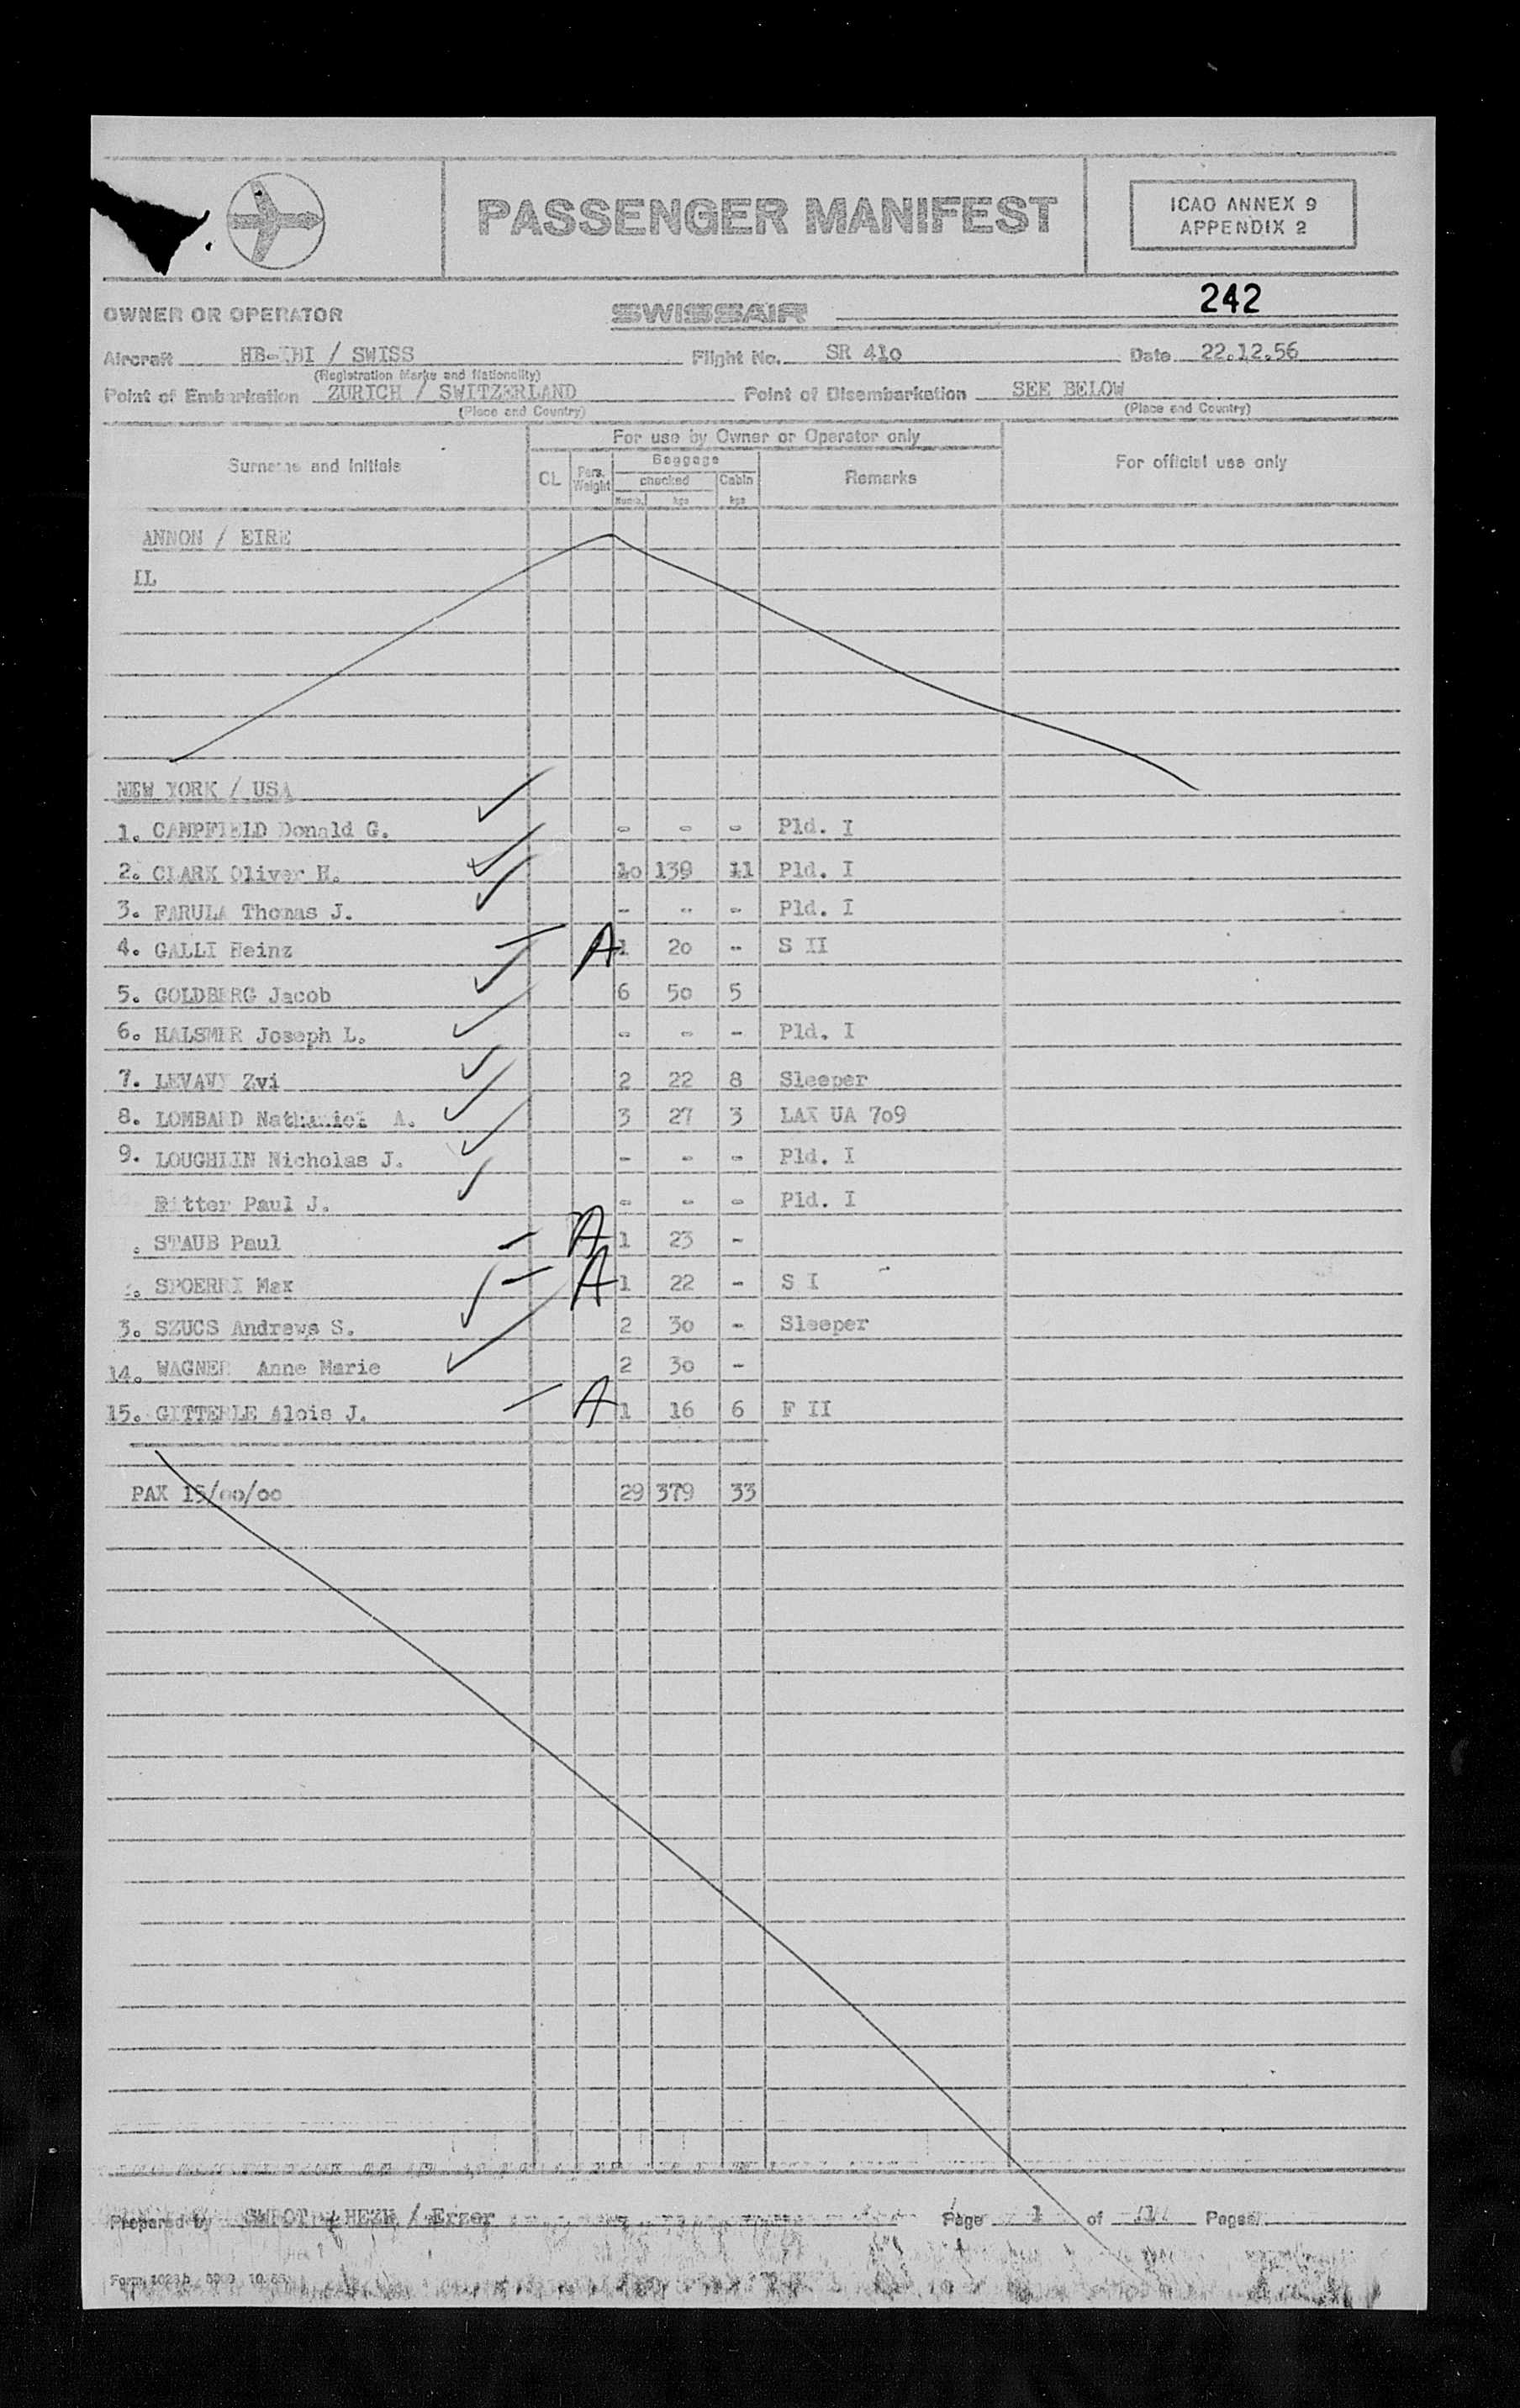 PASSENGER MANIFEST
ICAO ANNEX 9
APPENDIX 2
242
OWNER OR OPERATOR SWISSAIR
Aircraft / SWISS Flight No. SR 41o Date 22.12.56
(Registration Marks and Nationality)
Point of Embarkation ZURICH / SWITZERLAND Point of Disembarkation SEE BELOW
(Place and Country) (Place and Country)
For use by Owner or Operator only
Surname and Initials CL Pers. Weight Baggage Remarks For official use only
checked Cabin
Numb. kgs kgs
ANNON / EIRE
IL
NEW YORK / USA
1. CAMPFIELD Donald G. - - - Pld. I
2. CLARK Oliver H. 1o 139 11 Pld. I
3. FARULA Thomas J. - - - Pld. I
4. GALLI Heinz A 1 2o - S II
5. GOLDBERG Jacob 6 5o 5
6. HALSMER Joseph L. - - - Pld. I
7. LEVAVY Zvi 2 22 8 Sleeper
8. LOMBARD Nathaniel A. 3 27 3 LAX UA 7o9
9. LOUGHLIN Nicholas J. - - - Pld. I
Ritter Paul J. - - - Pld. I
. STAUB Paul A 1 23 -
. SPOERRI Max A 1 22 - S I
3. SZUCS Andrews S. 2 3o - Sleeper
14. WAGNER Anne Marie 2 3o -
15. GITTERLE Alois J. A 1 16 6 F II
PAX 15/oo/oo 29 379 33
Prepared by / Erzer Page 1 of 1 Pages